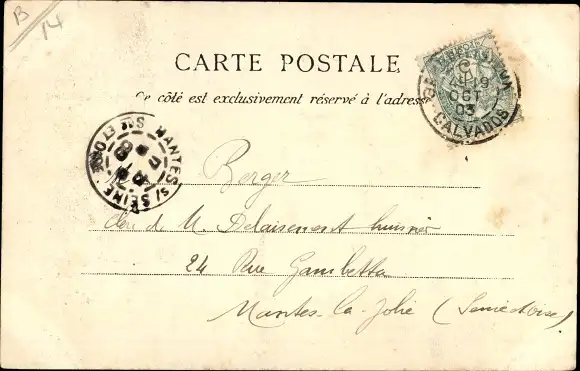 B
14
CARTE POSTALE
Ce côté est exclusivement réservé à l'adresse
OCT
03
CALVADOS
MANTES S/ SEINE
Berger
de M. Delaisement huissier
24 Rue Gambetta
Mantes-la-Jolie (Seine et Oise)